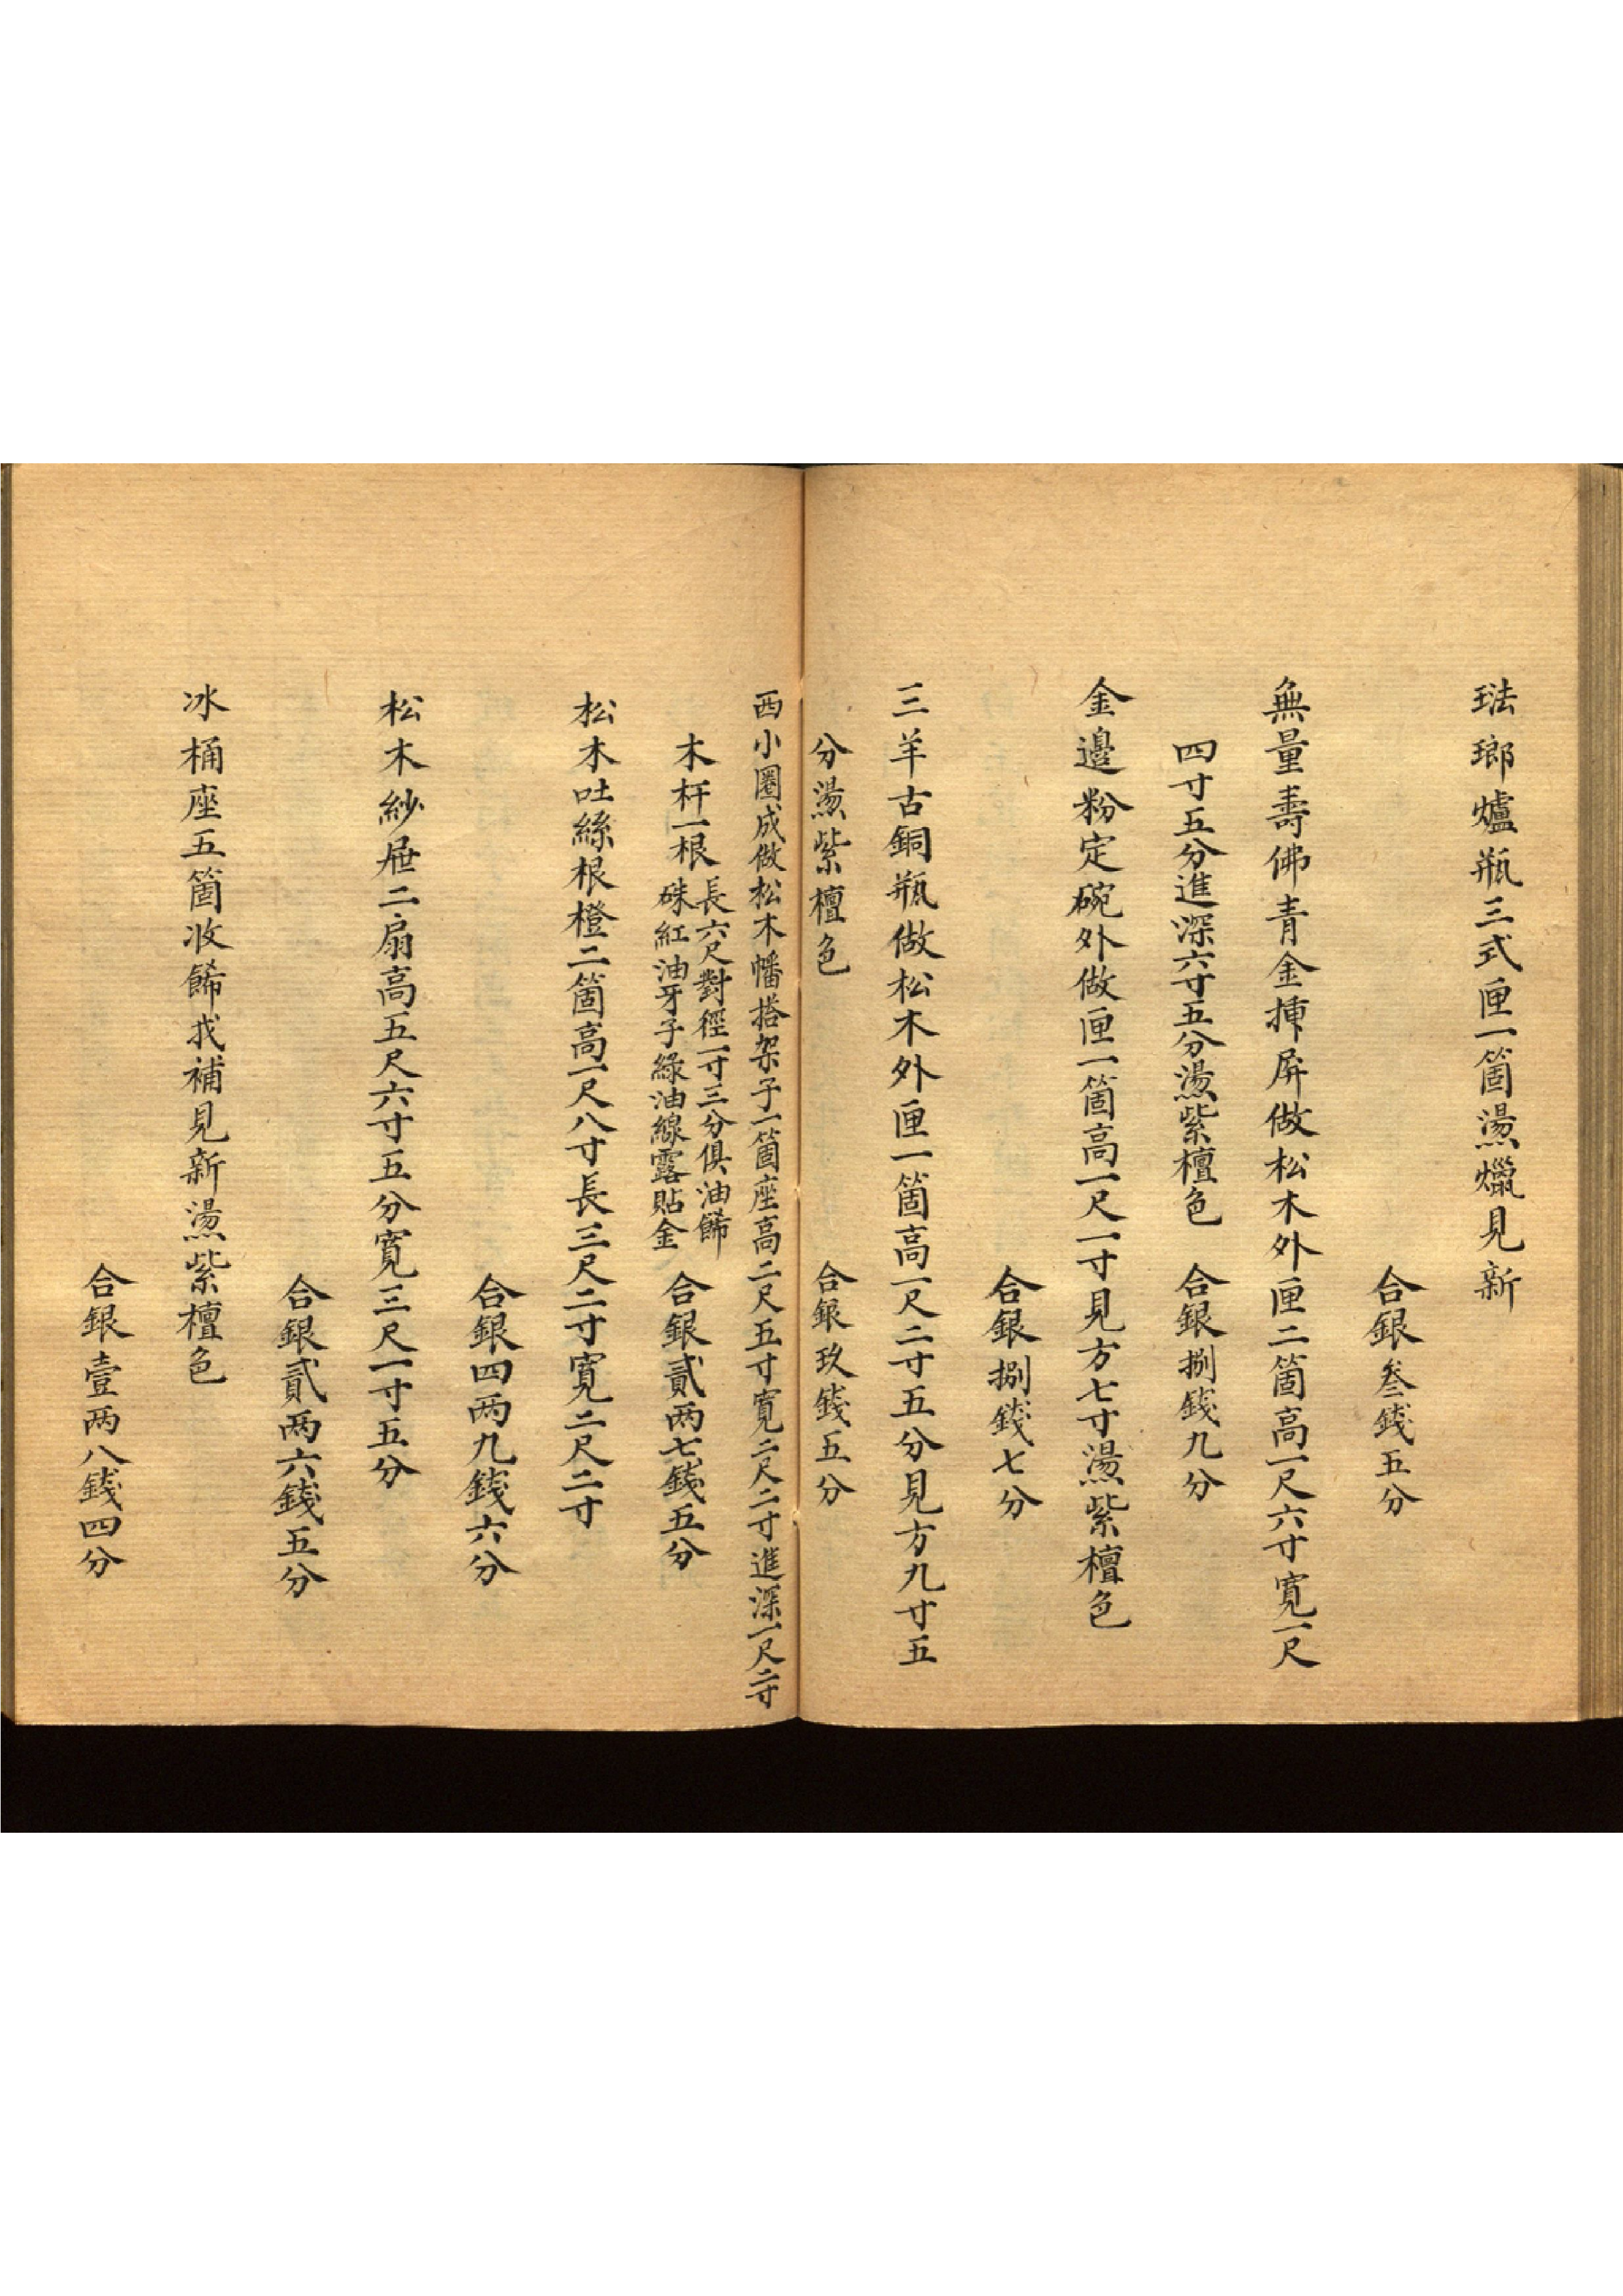 琺瑯爐瓶三式匣一箇燙爉見新
合銀叁錢五分
無量壽佛青金揷屏做松木外匣二箇高一尺六寸寬一尺
四寸五分進深六寸五分燙紫檀色
合銀捌錢九分
金邊粉定碗外做匣一箇高一尺一寸見方七寸燙紫檀色
合銀捌錢七分
三羊古銅瓶做松木外匣一箇高一尺二寸五分見方九寸五
分燙紫檀色
合銀玖錢五分
西小圈成做松木幡搭架子一箇座高二尺五寸寬二尺二寸進深一尺二寸
木杆一根
長六尺對徑一寸三分俱油餙
硃紅油牙子綠油線露貼金
合銀貳两七錢五分
松木吐絲根橙二箇高一尺八寸長三尺二寸寬二尺二寸
合銀四两九錢六分
松木紗屉二扇高五尺六寸五分寬三尺一寸五分
合銀貳两六錢五分
冰桶座五箇收餙找補見新燙紫檀色
合銀壹两八錢四分